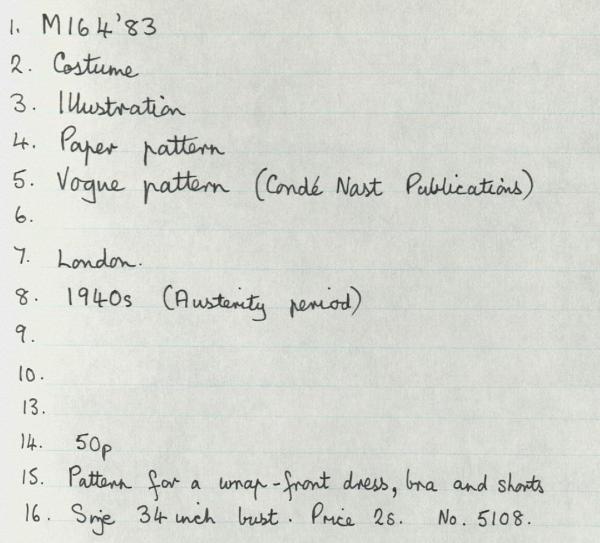 1. M164'83
2. Costume
3. Illustration
4. Paper pattern
5. Vogue pattern (Condé Nast Publications)
6.
7. London.
8. 1940s (Austerity period)
9.
10.
13.
14. 50p
15. Pattern for a wrap-front dress, bra and shorts
16. Size 34 inch bust. Price 2s. No. 5108.